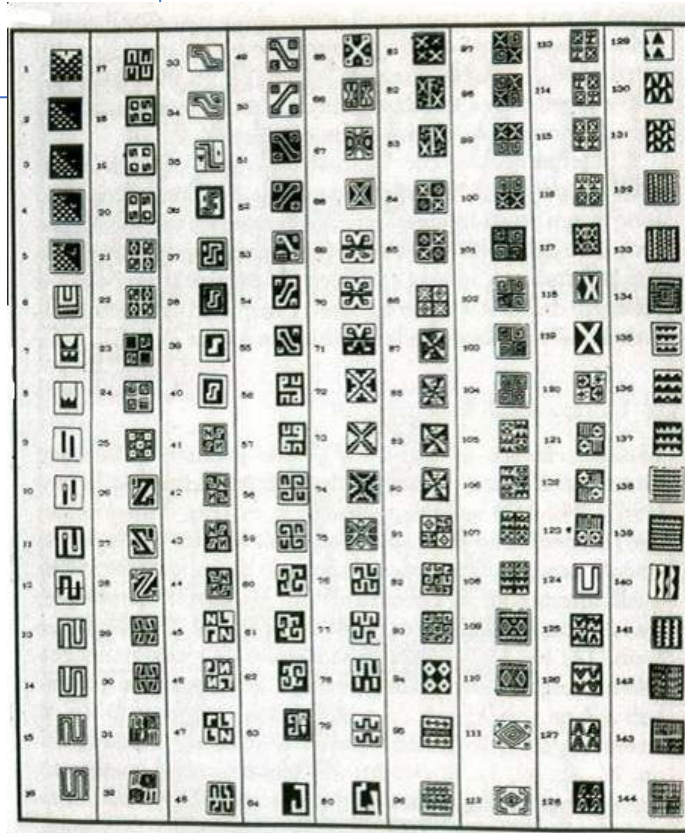 1
2
3
4
5
6
7
8
9
10
11
12
13
14
15
16
17
18
19
20
21
22
23
24
25
26
27
28
29
30
31
32
33
34
35
36
37
38
39
40
41
42
43
44
45
46
47
48
49
50
51
52
53
54
55
56
57
58
59
60
61
62
63
64
65
66
67
68
69
70
71
72
73
74
75
76
77
78
79
80
81
82
83
84
85
86
87
88
89
90
91
92
93
94
95
96
97
98
99
100
101
102
103
104
105
106
107
108
109
110
111
112
113
114
115
116
117
118
119
120
121
122
123
124
125
126
127
128
129
130
131
132
133
134
135
136
137
138
139
140
141
142
143
144